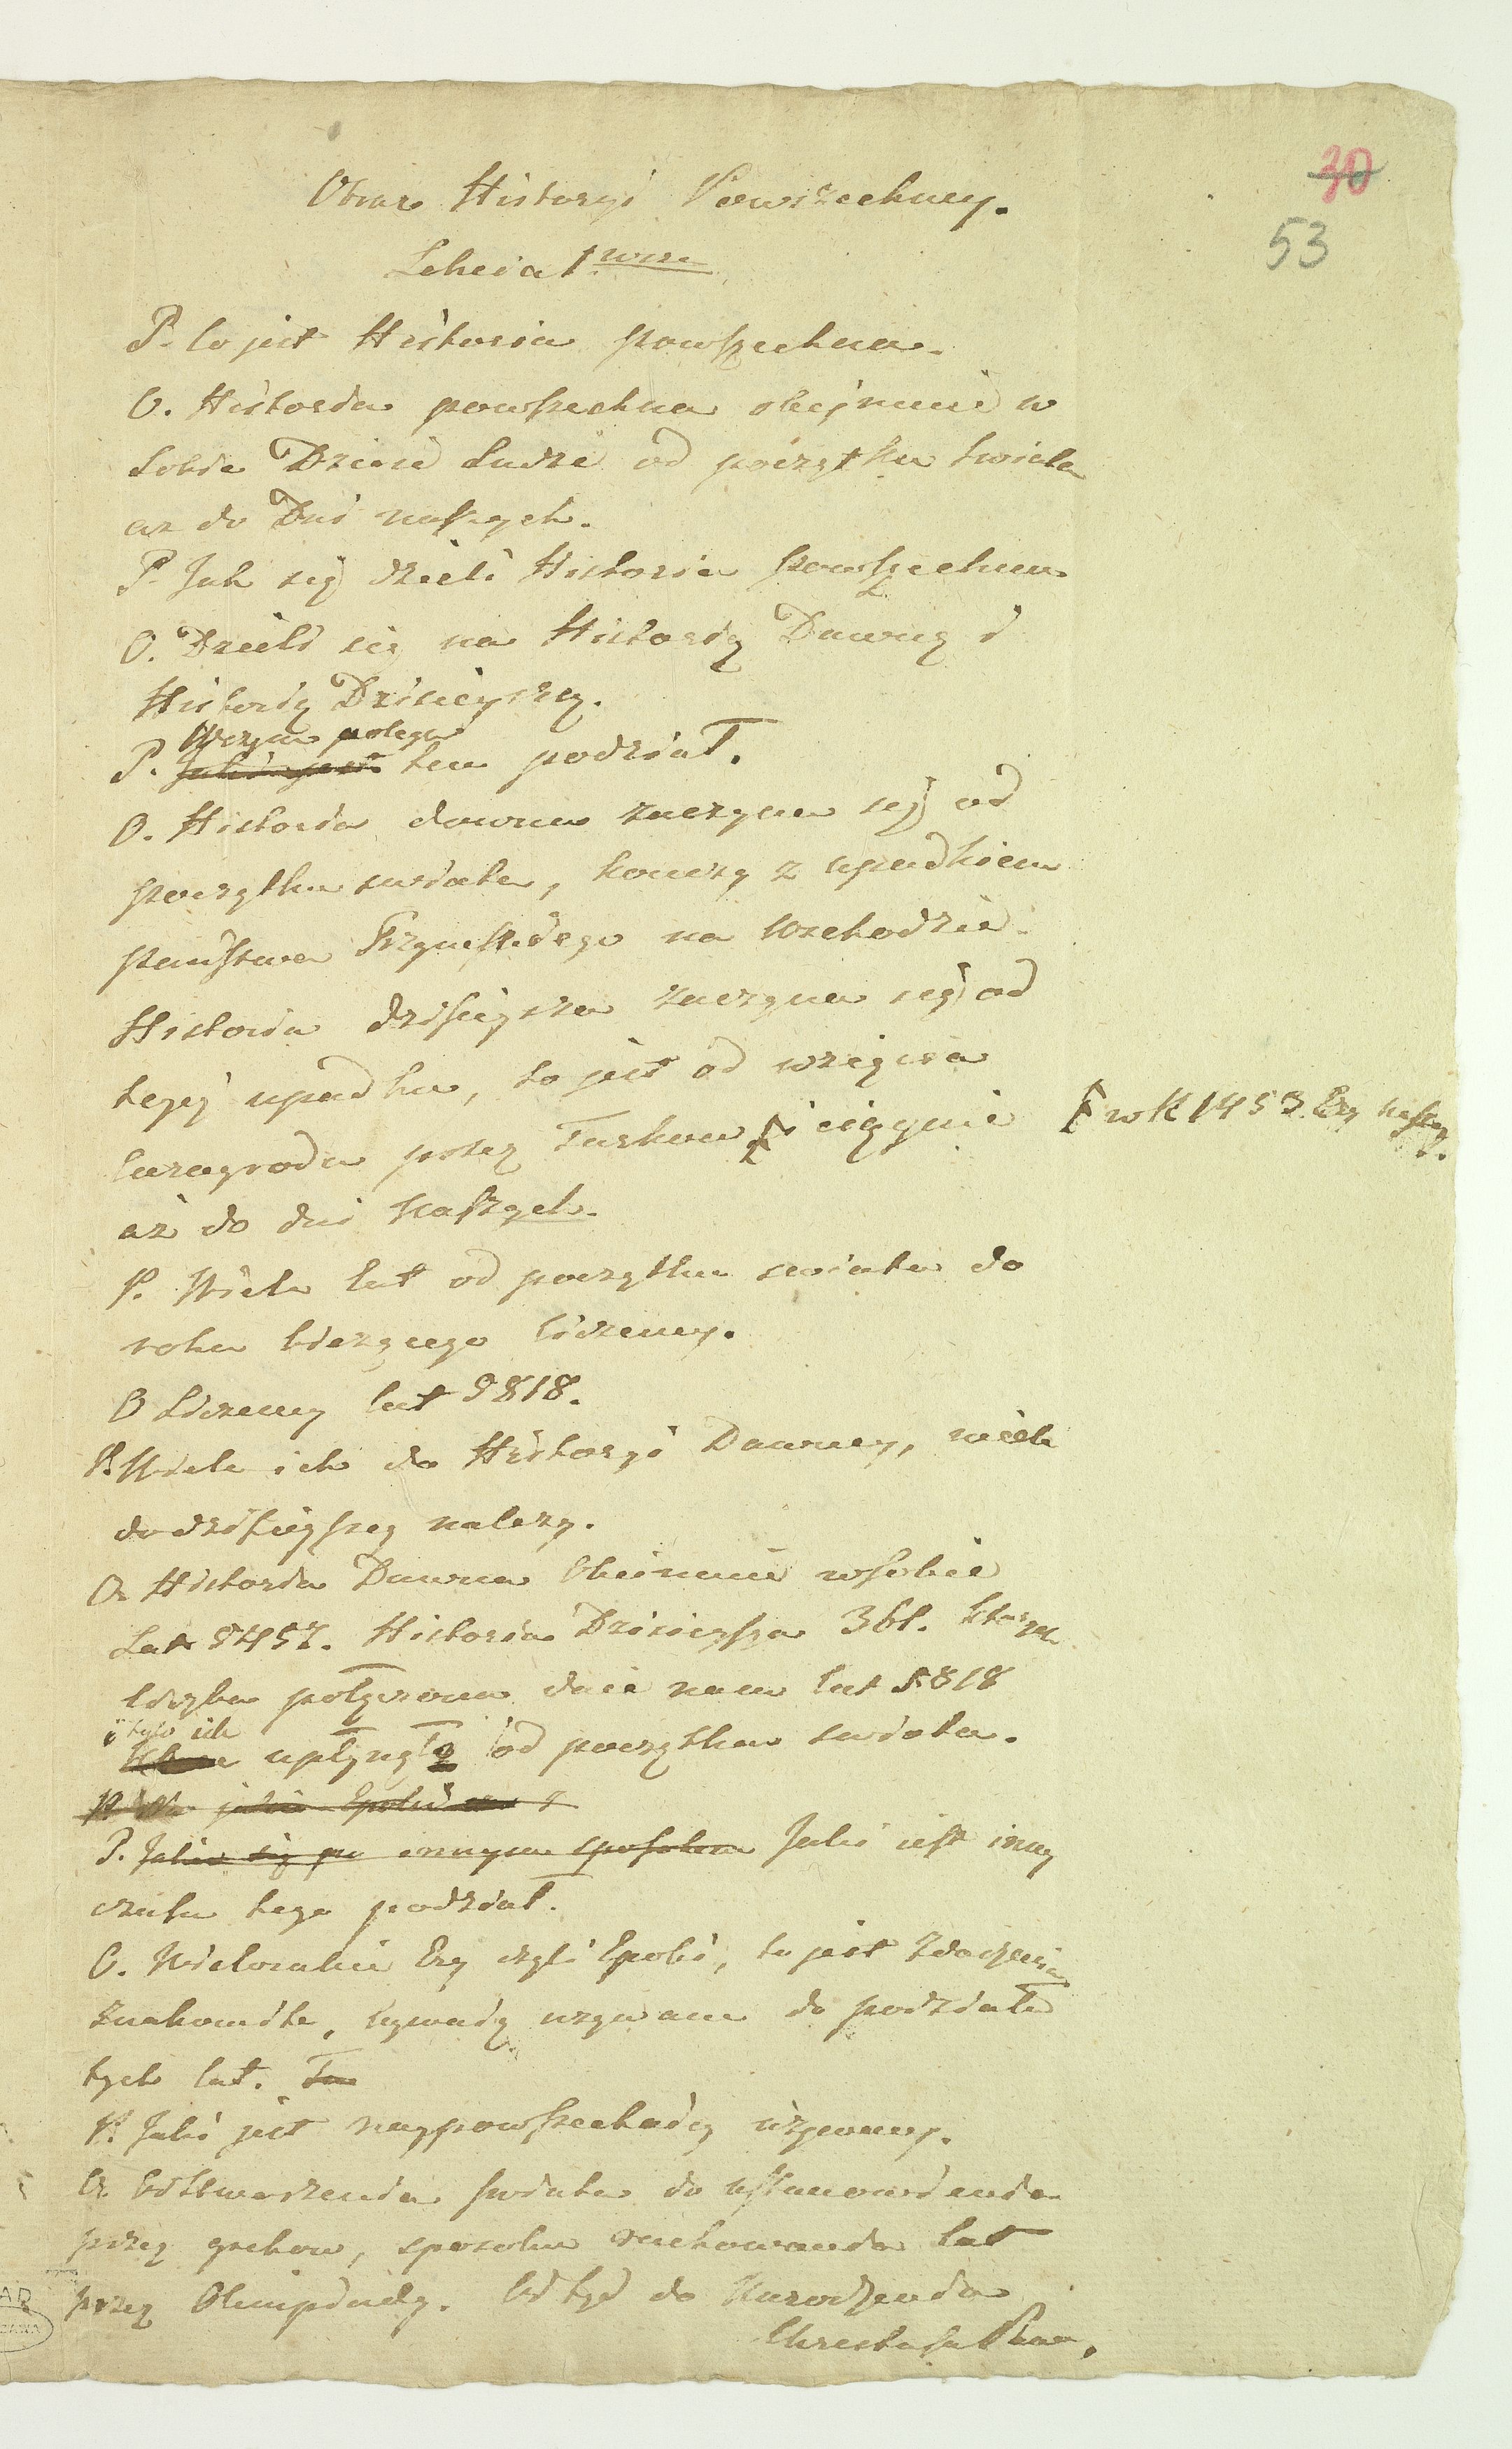 30
53
Obraz Historyi Powszechney.
Lekcia 1wsza
P. Co jest Historia powszechna.
O. Historia powszechna obejmuie w
sobie Dzieie Ludzi od początku swiata
az do Dni naszych.
P. Jak się dzieli Historia powszechna
O. Dzieli się na Historią Dawną i
Historią Dzisieyszą.
Wczym polega
P. ten podział.
O. Historia dawna zaczyna się od
początku swiata, konczy z upadkiem
państwa Rzymskiego na Wschodzie.
Historia dzisieysza zaczyna się od
tegoj upadku, to jest od wzięcia
Carogrodu przez Turkow i ciągnie
w R 1453. Ery naszey.
aż do dni naszych.
P. Wiele lat od początku swiata do
roku bierzącego liczemy.
O Liczemy lat 5818.
P. Wiele ich do Historyi Dawney, wiele
do dzisieyszey nalezy.
O. Historia Dawna Obeimuie w sobie
Lat 5457. Historia Dzisieysza 361. ktorych
liczba połączona daie nam lat 5818
i tylo ich
upłynęło od początku swiata.
P. Jakie się po innym sposobem Jaki iest inny
czasu tego podział.
O. Wielorakie Ery czyli Epoki, to jest zdarzenia
znakomite, bywaią uzywane do podziału
tych lat.
P. Jaki jest naypowszechniey używany.
O. Od stworzenia swiata do ustanowienia
przez grekow, sposobu rachowania lat
przez Olimpiady. Od tąd do Narodzenia
Chrystusa Pana,